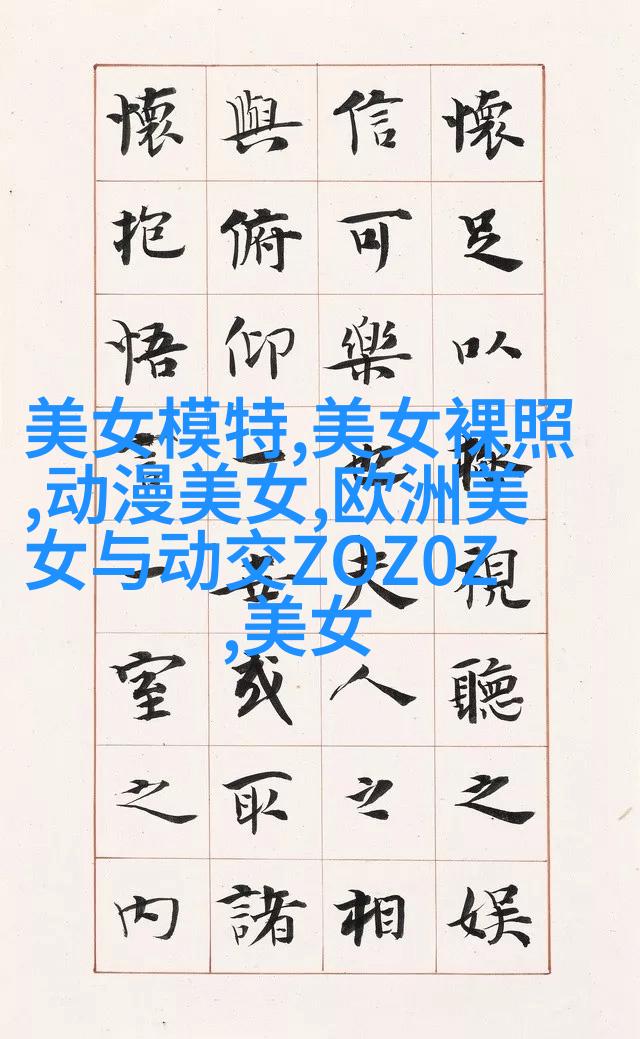 懷足以極視聽之娛
信可樂也夫人之相
與俯仰一世或取諸
懷抱悟言一室之內
美女模特,美女裸照
,动漫美女,欧洲美
女与动交ZOZ0Z
,美女